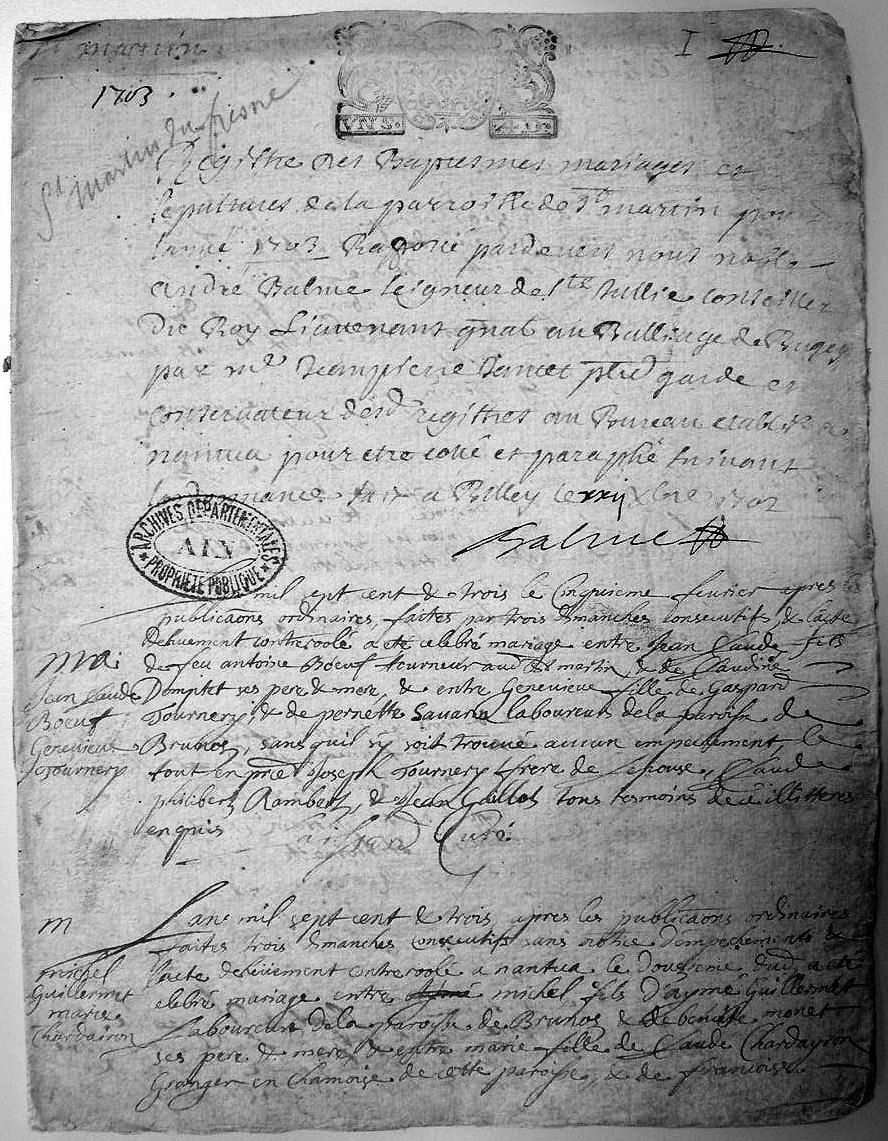 St martin
I
1703
St Martin du fresne
Registre des Baptesmes mariages et
sepultures de la parroisse de St martin pour
lannée 1703 par devers nous noble
andré Balme seigneur de Ste Jullie conseiller
Du Roy Lieutenant gnal au Balliage de Bugey
par mre garde et
conservateur desd registres au Bureau etably a
nantua pour etre cotté et paraphé suivant
fait a Belley le xxij xbre 1702
Balme
ARCHIVES DÉPARTEMENTALES
AIN
PROPRIÉTÉ PUBLIQUE
mil sept cent & trois le cinquieme fevrier apres
publicaons ordinaires faites par trois dimanches consecutifs, & lacte
Dehuement controolé a eté celebré mariage entre Jean Claude fils
de feu antoine Bœuf aud St martin, & de Claudine
ses pere & mere, & entre Genevieve fille de Gaspard
Tournery, & de pernette Savarin laboureur de la paroisse de
Brunos, sans quil sy soit trouué aucun empechement, le
tout en pnce Joseph Tournery frere de lepouse, Claude
philibert Rambert, & Jean Gaillot tous tesmoins illitteres
enquis
Curé
ma:
Jean Claude
Bœuf
Genevieve
Tournery
Lanc mil sept cent & trois apres les publicaons ordinaires
faites trois dimanches consecutifs sans notice d'empechements &
lacte dehuement controolé a nantua le Dousieme dud a eté
celebré mariage entre michel fils d'aymé Guillermet
Laboureur de la paroisse de Brunos & de benoitte monet
ses pere & mere, & entre marie fille de Claude Chardayron
Granger en Chamoise de cette paroisse, & de francoise
m
michel
Guillermet
marie
Chardairon